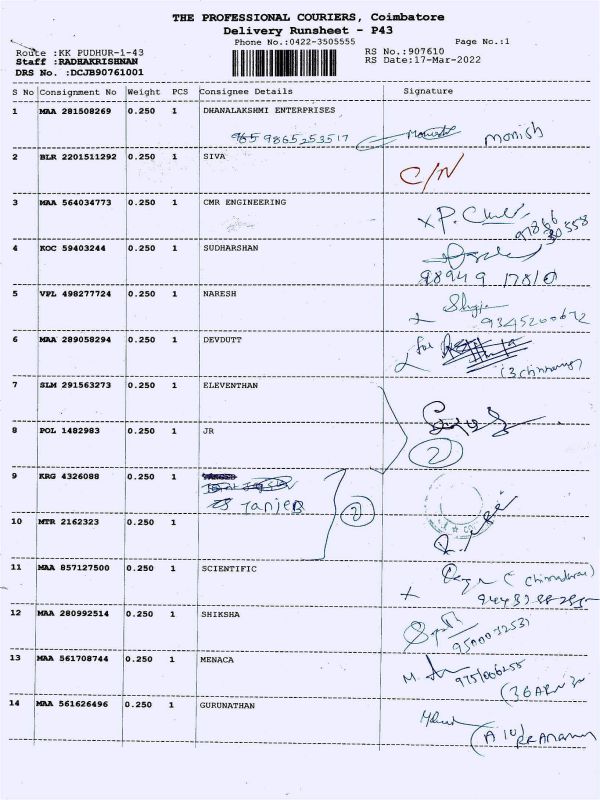 THE PROFESSIONAL COURIERS, Coimbatore
Delivery Runsheet - P43
Phone No.:0422-3505555 Page No.:1
Route :KK PUDHUR-1-43 RS No.:907610
Staff :RADHAKRISHNAN RS Date:17-Mar-2022
DRS No. :DCJB90761001
S No Consignment No Weight PCS Consignee Details Signature
1 MAA 281508269 0.250 1 DHANALAKSHMI ENTERPRISES
9865253517 Monish
2 BLR 2201511292 0.250 1 SIVA
C/N
3 MAA 564034773 0.250 1 CMR ENGINEERING
4 KOC 59403244 0.250 1 SUDHARSHAN
98949 17810
5 VPL 498277724 0.250 1 NARESH
9345200672
6 MAA 289058294 0.250 1 DEVDUTT
for
7 SLM 291563273 0.250 1 ELEVENTHAN
8 POL 1482983 0.250 1 JR
2
9 KRG 4326088 0.250 1
Tanjer 2
10 MTR 2162323 0.250 1
11 MAA 857127500 0.250 1 SCIENTIFIC
12 MAA 280992514 0.250 1 SHIKSHA
9500073253
13 MAA 561708744 0.250 1 MENACA
9751006255
14 MAA 561626496 0.250 1 GURUNATHAN